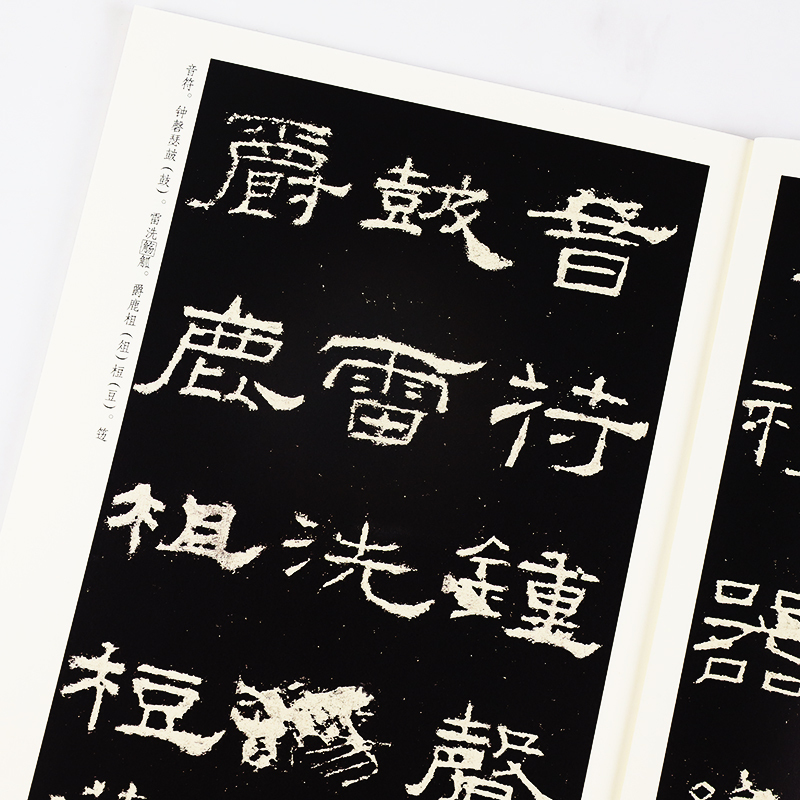 器
音符鍾磬
皷雷洗觴
爵鹿柤梪
音符。钟磬瑟皷(鼓)。雷洗觞觚。爵鹿柤(俎)梪(豆)。笾